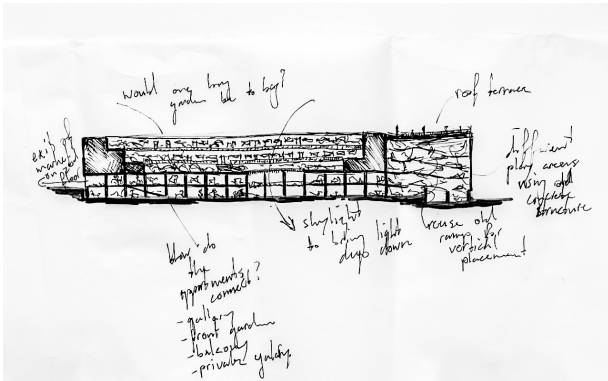 would one long
garden be to big?
roof terrace
exit of
market
on the
roof
different
play areas
using old
concrete
structure
skylights
to bring light
deep down
reuse old
ramp for
vertical
placement
how do
the
appartments
connect?
- gallery
- front garden
- balcony
- private